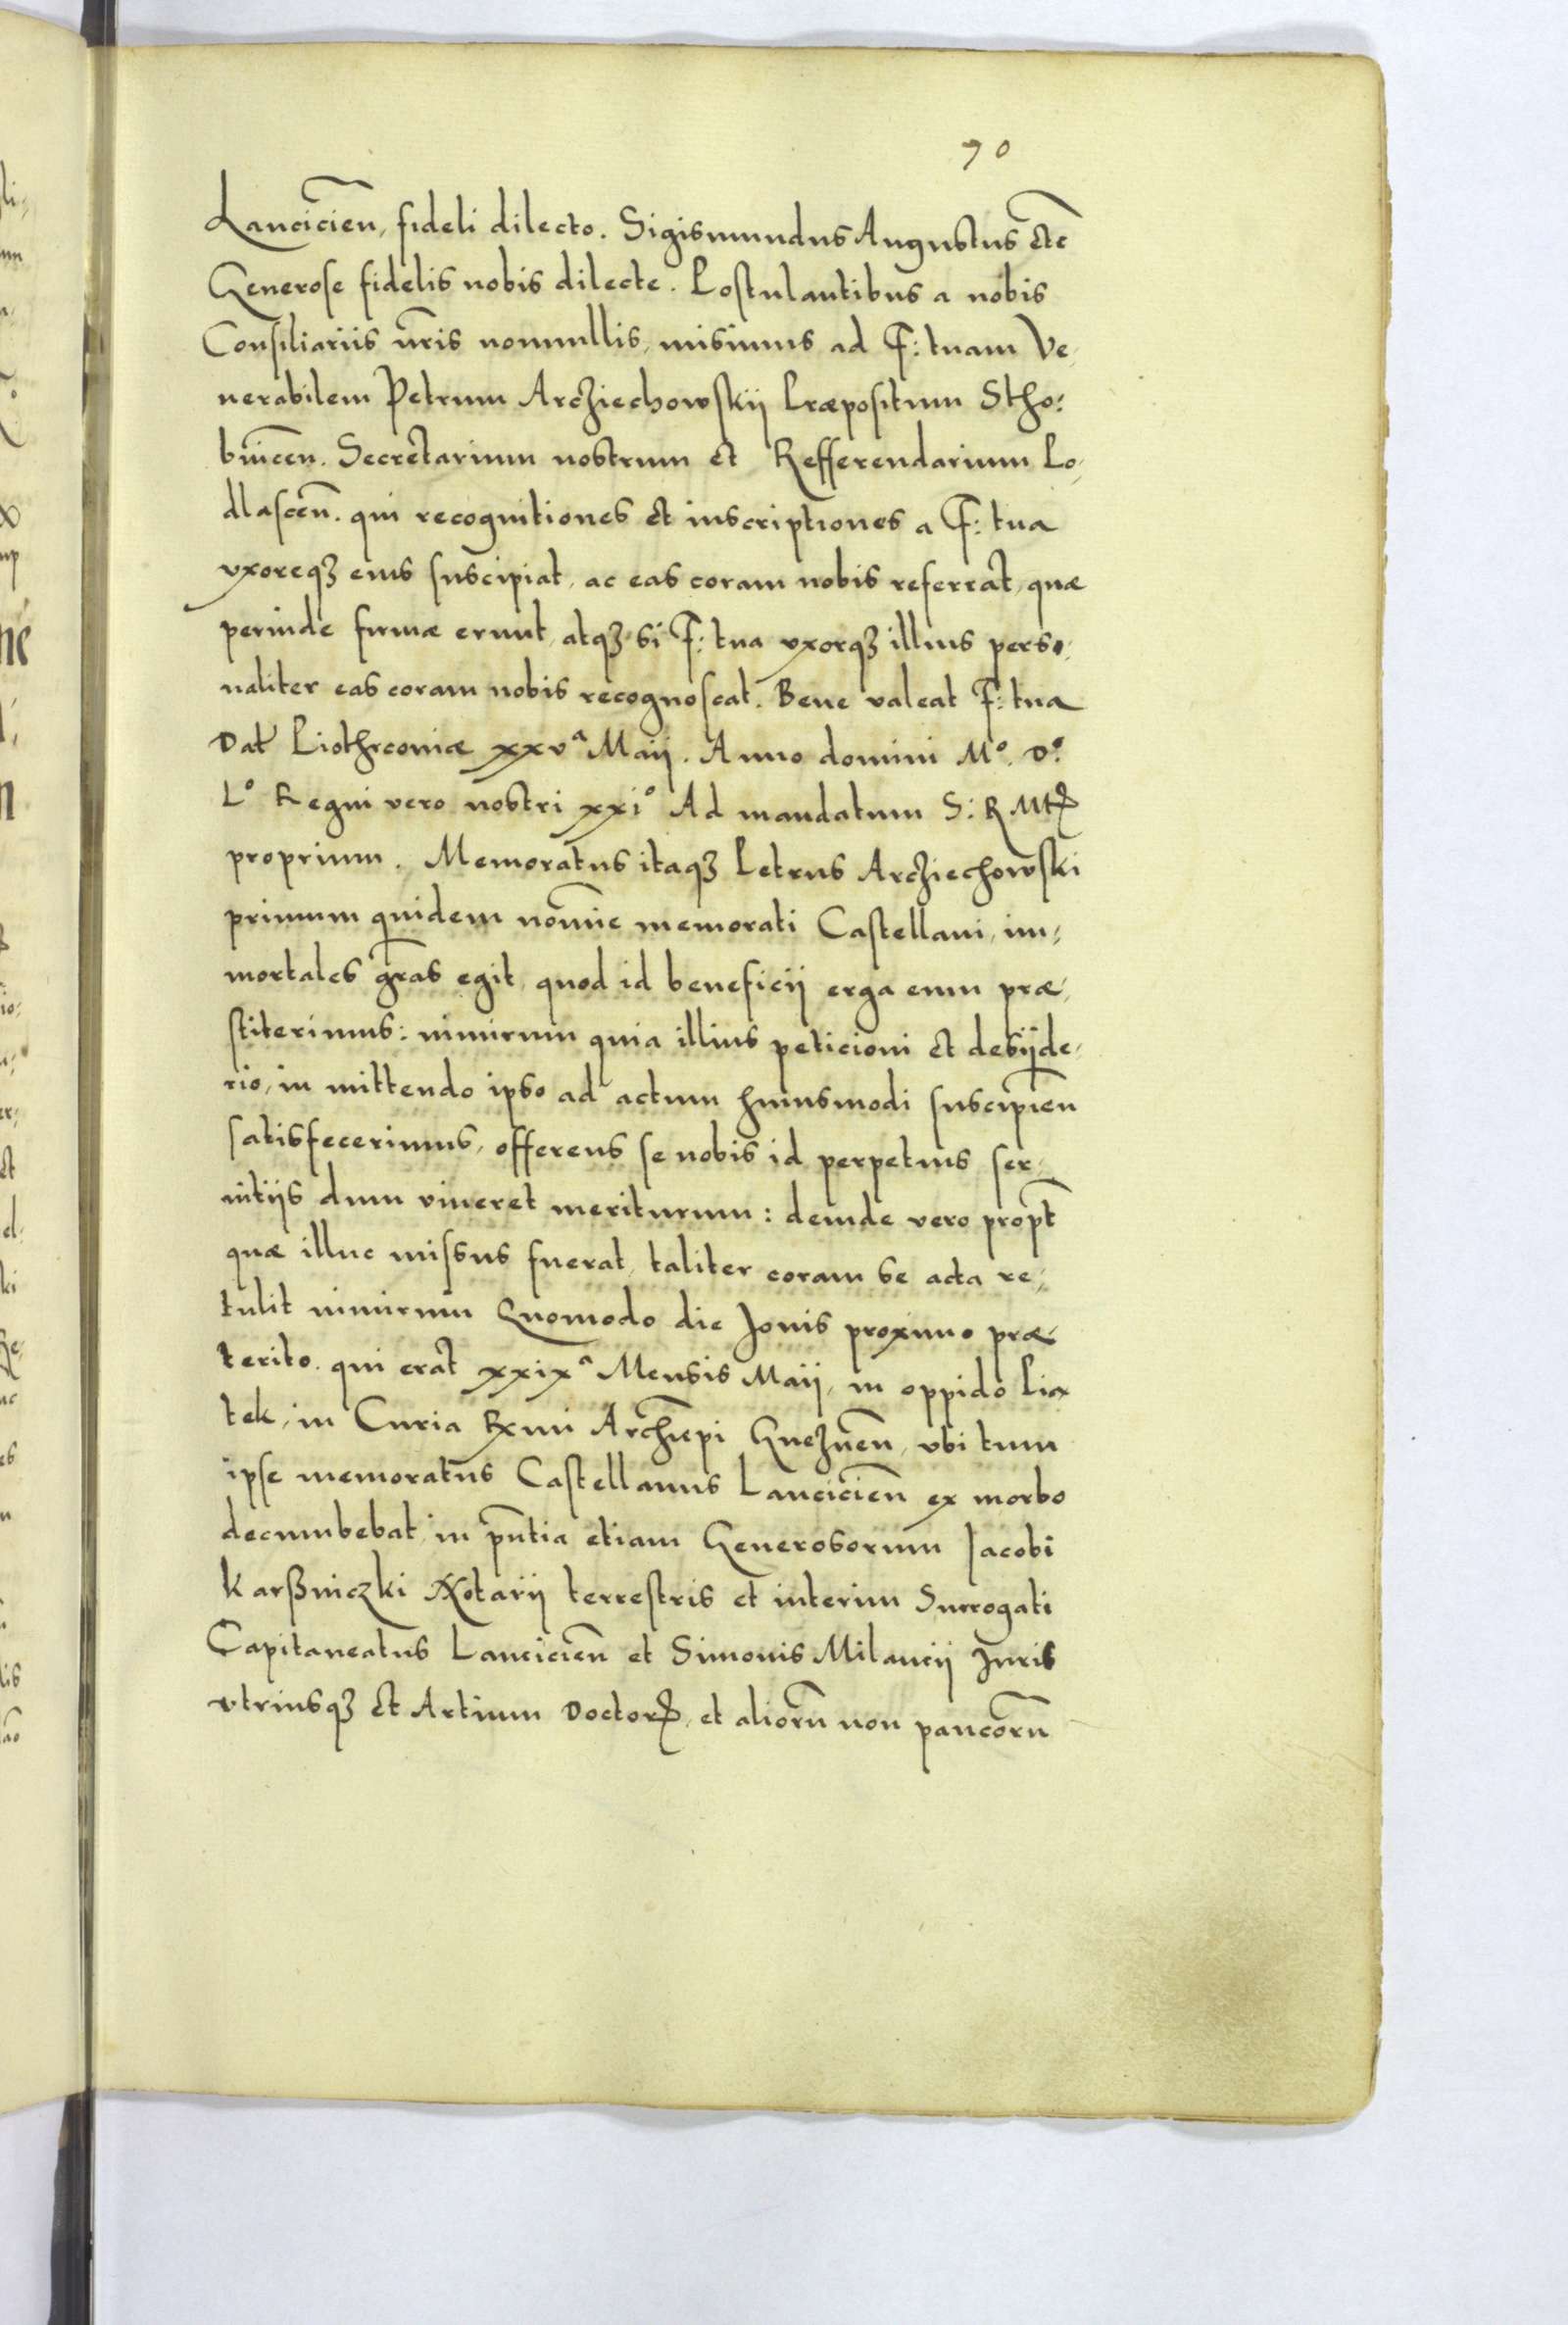 70
Lancicieñ, fideli dilecto. Sigismundus Augustus etc̃
Generose fidelis nobis dilecte. Postulantibus a nobis
Consiliariis nr̃is nonnullis, misimus ad F: tuam Ve-
nerabilem Petrum Arcziechowskij Præpositum Stho:
bniceñ. Secretarium nostrum et Refferendarium Po-
dlasceñ. qui recognitiones et inscriptiones a F: tua
vxoreqꝫ eius suscipiat, ac eas coram nobis referrat, quæ
perinde firmæ erunt, atqꝫ si F: tua vxorqꝫ illius perso-
naliter eas coram nobis recognoscat. Bene valeat F: tua
Dat Piothrconiæ xxvᵃ Maij. Anno domini Mº. Dº.
Lº Regni vero nostri xxiº Ad mandatum S: R Mtꝭ
proprium. Memoratus itaqꝫ Petrus Arcziechowski
primum quidem nom̃ie memorati Castellani, im-
mortales gr̃as egit, quod id beneficij erga eum præ-
stiterimus: nimirum quia illius peticioni et desijde-
rio, in mittendo ipso ad actum huiusmodi suscipieñ
satisfecerimus, offerens se nobis id perpetuis ser-
uitijs dum viueret meriturum: deinde vero propt̃
quæ illuc missus fuerat, taliter coram se acta re-
tulit nimirum Quomodo die Jouis proximo præ-
terito. qui erat xxixᵃ Mensis Maij, in oppido Pia-
tek, in Curia Rx̃mi Archiep̃i Gnezneñ, vbi tum
ipse memoratus Castellanus Lancicieñ ex morbo
decumbebat, in pñtia etiam Generosorum Jacobi
Karßniczki Notarij terrestris et interim Surrogati
Capitaneatus Lancicieñ et Simonis Milancij Juris
vtriusqꝫ et Artium Doctorꝝ, et aliorũ non paucorũ